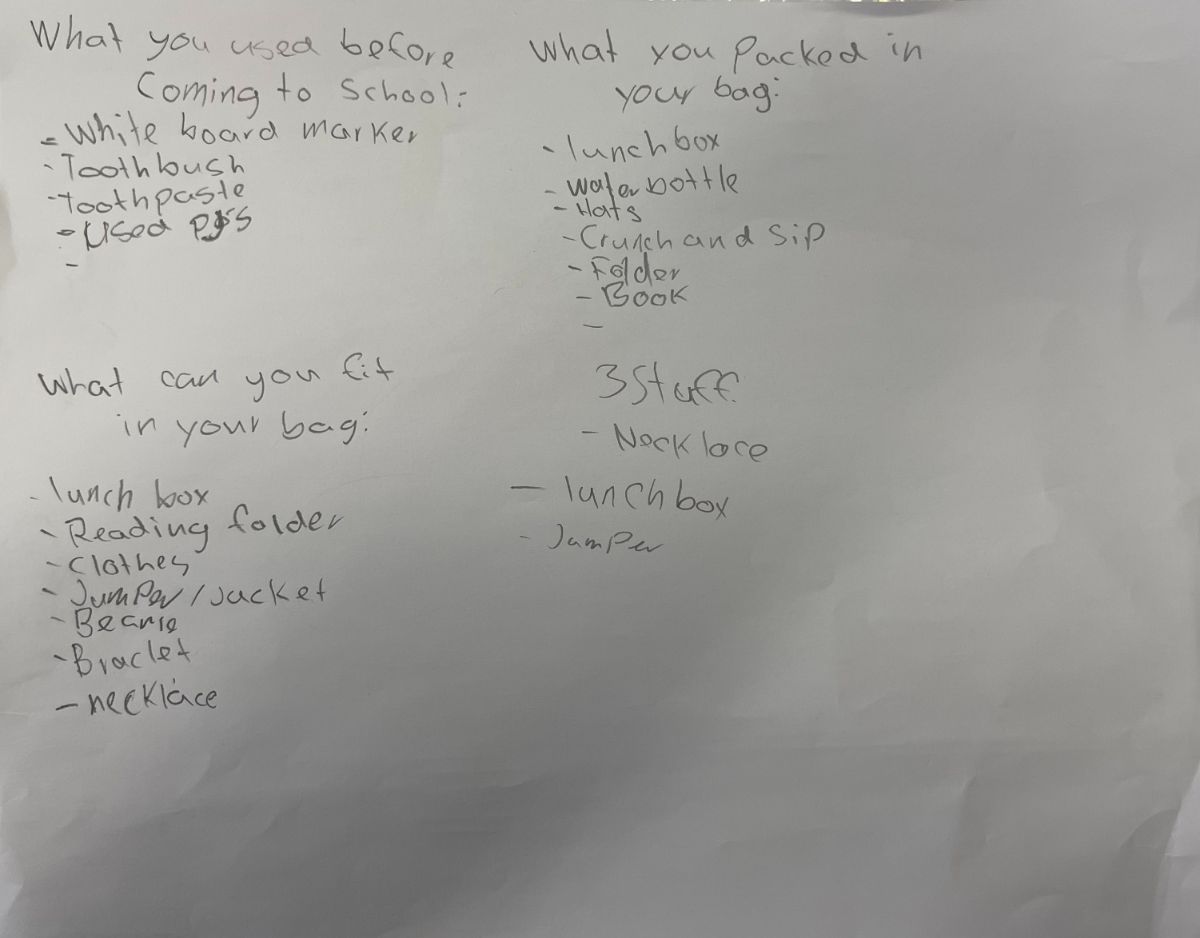 What you used before
Coming to School:
- White board marker
- Toothbush
- toothpaste
- Used PJs
-
What you Packed in
your bag:
- lunch box
- Water bottle
- Hats
- Crunch and Sip
- Folder
- Book
-
What can you fit
in your bag:
- lunch box
- Reading folder
- Clothes
- Jumper / Jacket
- Beanie
- Braclet
- necklace
3 Stuff
- Necklace
- lunch box
- Jumper